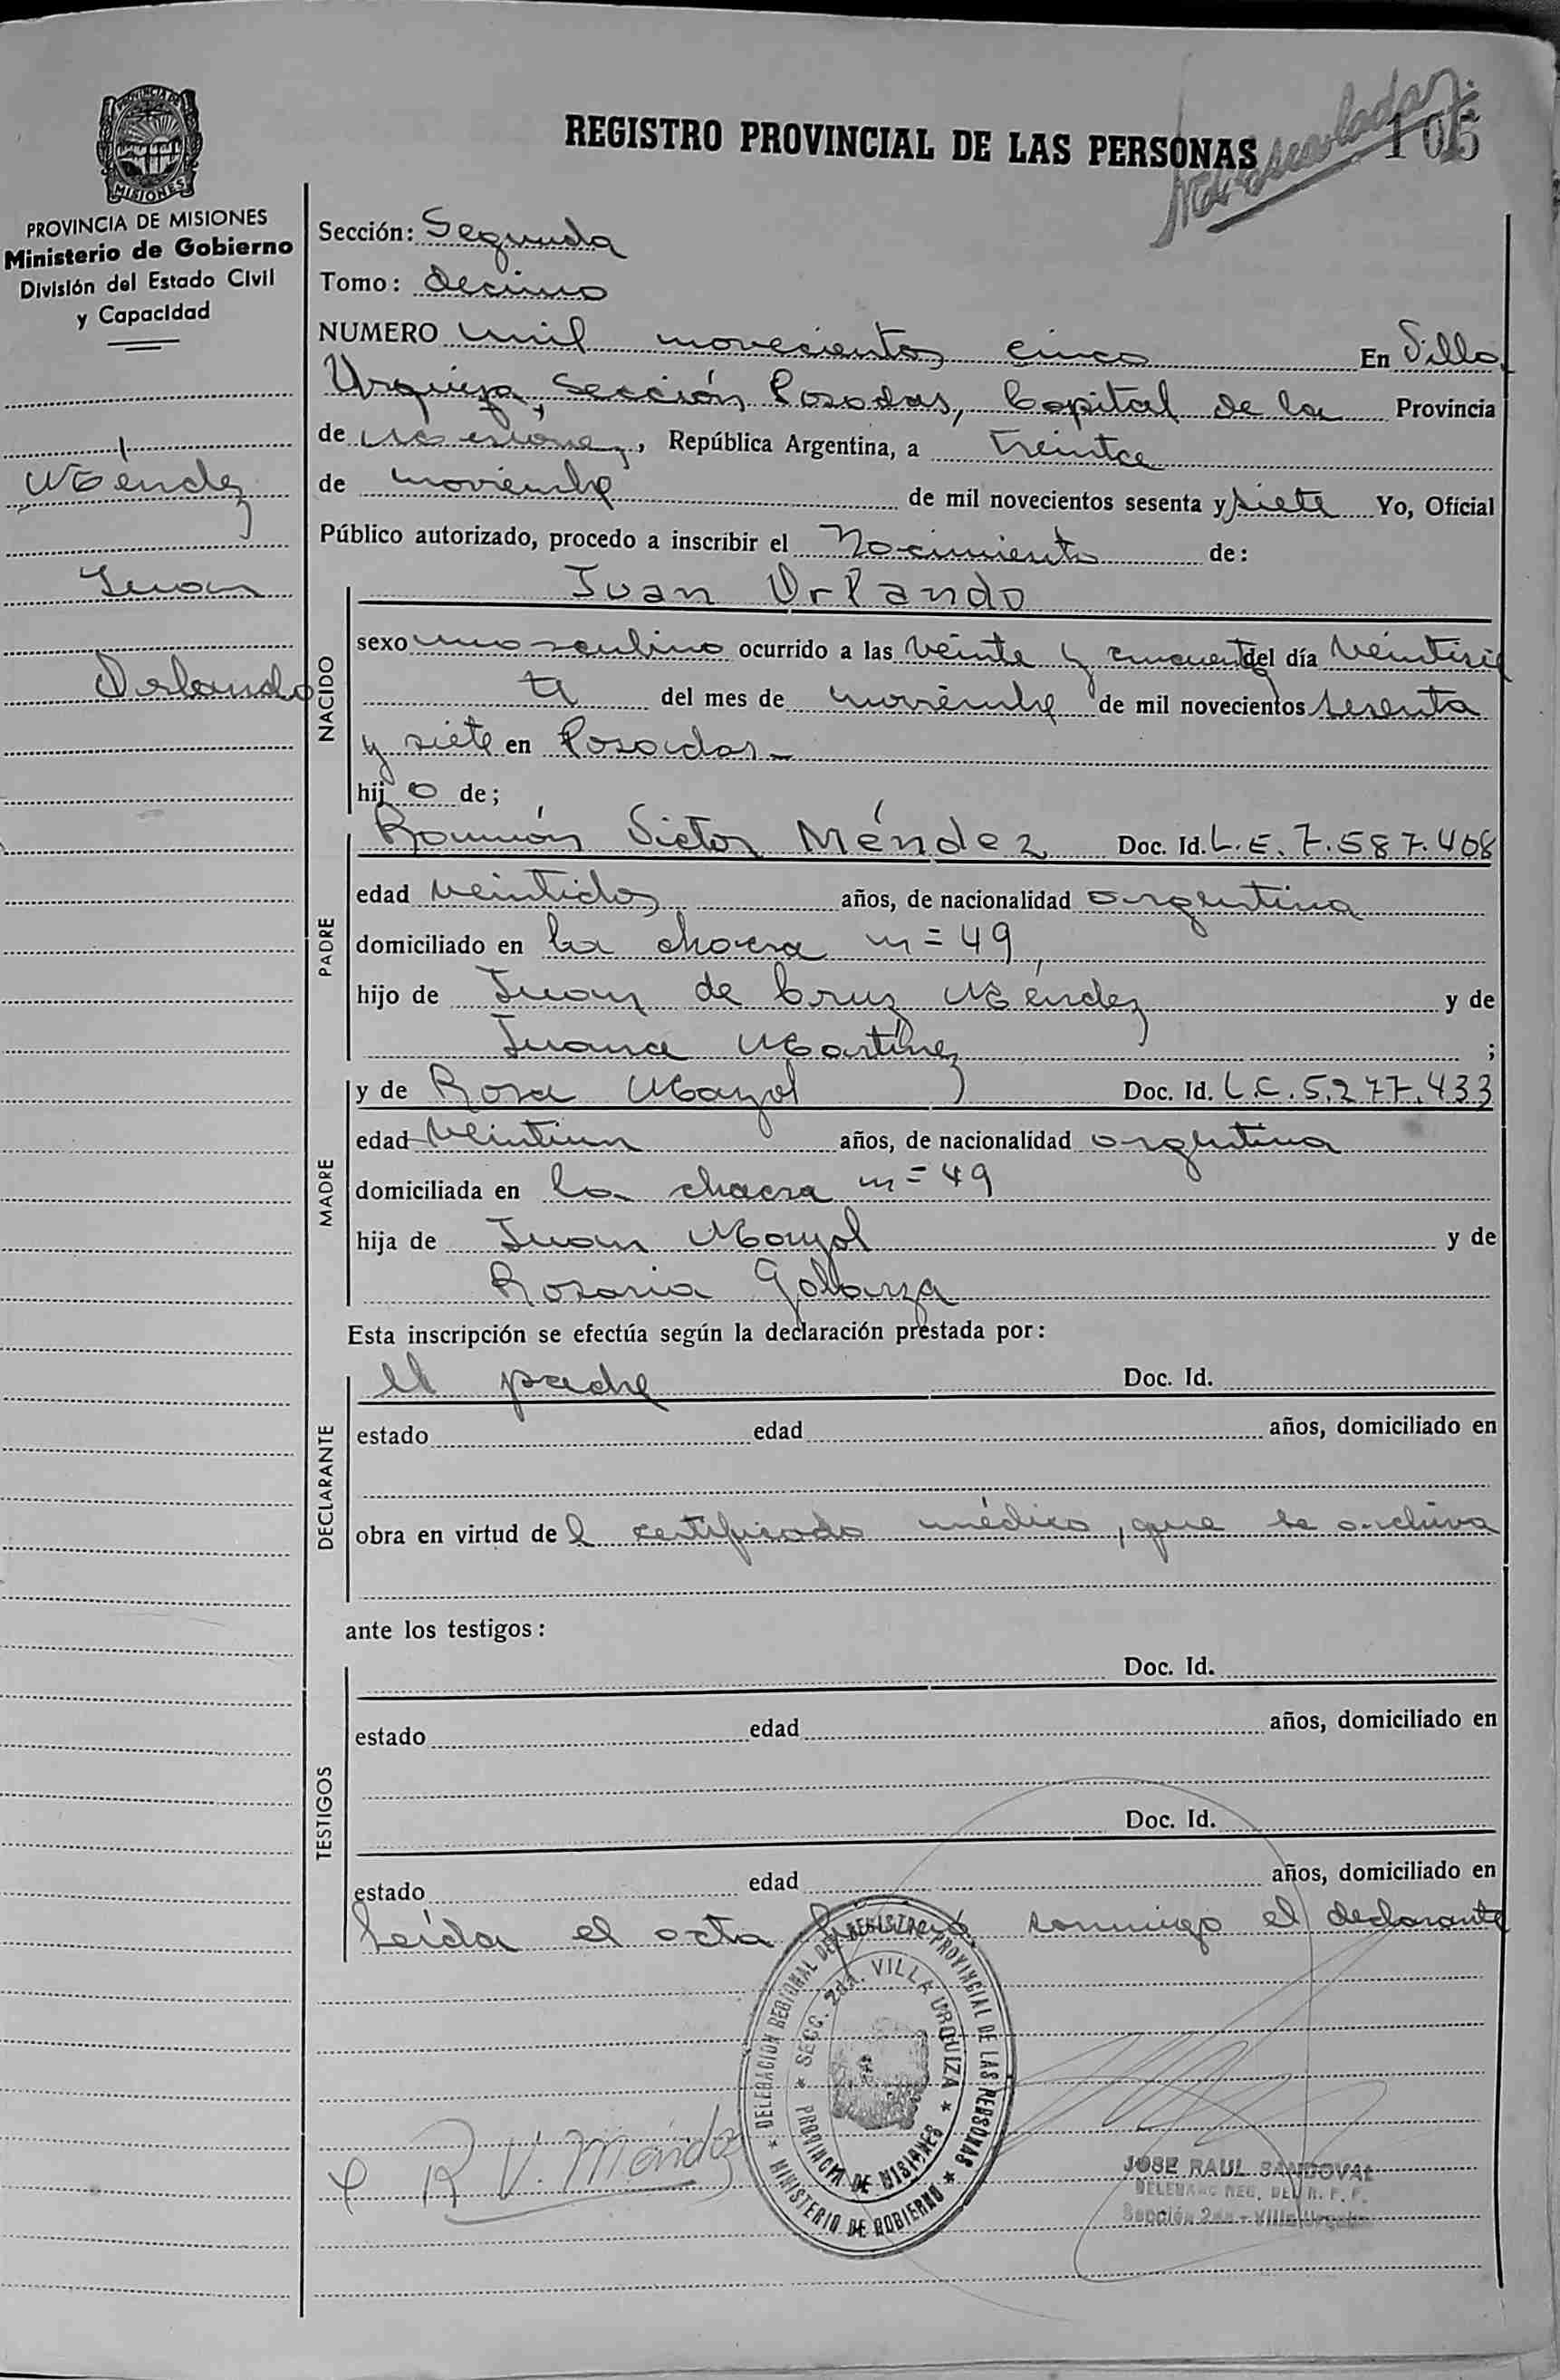 REGISTRO PROVINCIAL DE LAS PERSONAS
105
PROVINCIA DE
MISIONES
PROVINCIA DE MISIONES
Ministerio de Gobierno
División del Estado Civil
y Capacidad
Méndez
Juan
Orlando
Sección: Segunda
Tomo: decimo
NUMERO mil novecientos cinco En Villa
Urquiza, Sección Posadas, Capital de la Provincia
de Misiones, República Argentina, a treinta
de noviembre de mil novecientos sesenta y siete Yo, Oficial
Público autorizado, procedo a inscribir el Nacimiento de:
NACIDO
Juan Orlando
sexo masculino ocurrido a las veinte y cincuenta del día veintisie
te del mes de noviembre de mil novecientos sesenta
y siete en Posadas
hijo de;
PADRE
Ramón Victor Méndez Doc. Id. L.E. 7.587.408
edad veintidos años, de nacionalidad argentina
domiciliado en la chacra nº 49,
hijo de Juan de Cruz Méndez y de
Juana Martínez ;
MADRE
y de Rosa Mayol Doc. Id. L.C. 5.277.433
edad veintiun años, de nacionalidad argentina
domiciliada en la chacra nº 49
hija de Juan Mayol y de
Rosaria Galarza
Esta inscripción se efectúa según la declaración prestada por:
DECLARANTE
el padre Doc. Id.
estado edad años, domiciliado en
obra en virtud del certificado médico, que se archiva
ante los testigos:
TESTIGOS
Doc. Id.
estado edad años, domiciliado en
Doc. Id.
estado edad años, domiciliado en
Leída el acta la conmigo el declarante
DELEGACION REGIONAL DEL REGISTRO PROVINCIAL DE LAS PERSONAS
SECC. 2da. VILLA URQUIZA
PROVINCIA DE MISIONES
MINISTERIO DE GOBIERNO
R V. Méndez
JOSE RAUL SANDOVAL
DELEGADO REG. DEL R. P. P.
Sección 2da - Villa Urquiza